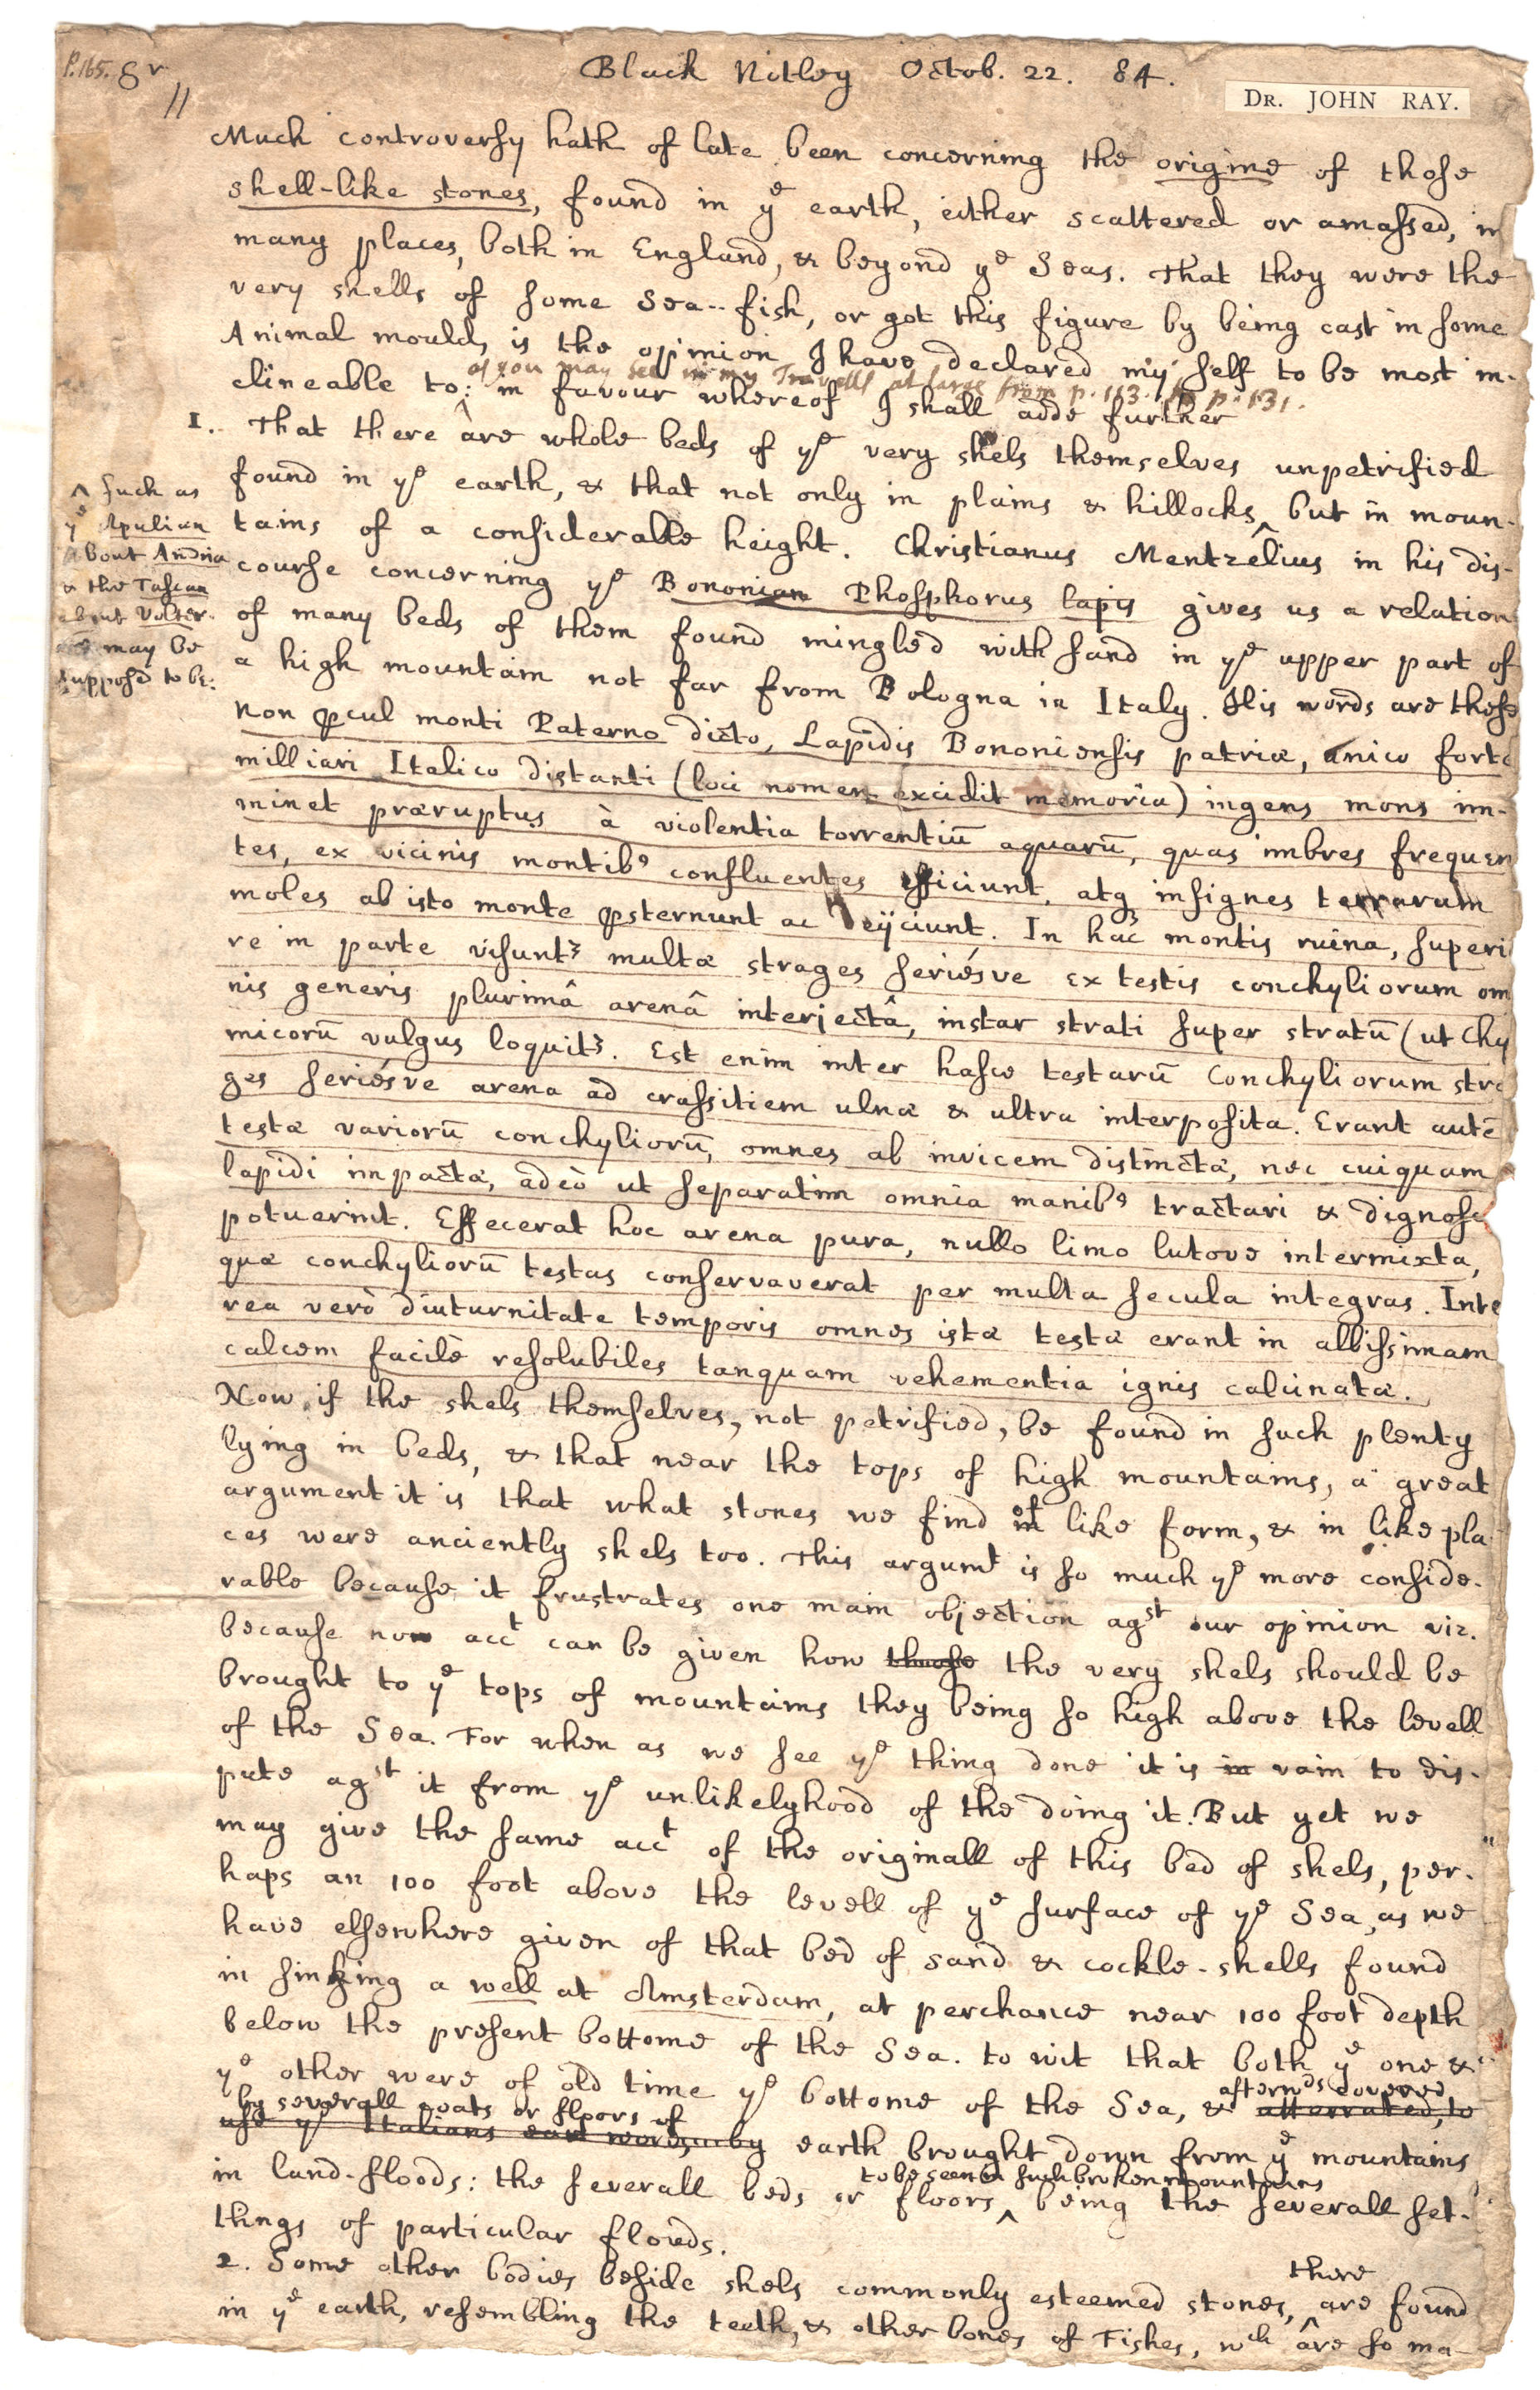 P. 165. 8v
11
Black Notley Octob. 22. 84.
DR. JOHN RAY.
Much controversy hath of late been concerning the origine of those
shell-like stones, found in ye earth, either scattered or amassed, in
many places, both in England, & beyond ye Seas. That they were the
very shells of some Sea-fish, or got this figure by being cast in some
Animal mould, is the opinion I have declared my self to be most in-
as you may see in my Travells at large from p. 113. to p. 131.
clineable to: in favour whereof I shall adde further
1. That there are whole beds of ye very shels themselves unpetrified
found in ye earth, & that not only in plains & hillocks ^ but in moun-
^ such as
ye Apulian
about Andria
& the Tuscan
about Volter-
may be
supposed to be:
tains of a considerable height. Christianus Mentzelius in his dis-
course concerning ye Bononian Phosphorus lapis gives us a relation
of many beds of them found mingled with sand in ye upper part of
a high mountain not far from Bologna in Italy. His words are these
non ꝓcul monti Paterno dicto, Lapidis Bononiensis patriæ, unico forte
milliari Italico distanti (loci nomen excidit memoria) ingens mons im-
minet præruptus à violentia torrentiū aquarū, quas imbres frequen
tes, ex vicinis montib9 confluentes efficiunt, atq insignes terrarum
moles ab isto monte ꝓsternunt ac deijciunt. In hac montis ruina, superi
re in parte visuntr multæ strages seriésve ex testis conchyliorum om
nis generis plurimâ arenâ interjectâ, instar strati super stratū (ut Chy
micorū vulgus loquitr. Est enim inter hasce testarū Conchyliorum stra
ges seriésve arena ad crassitiem ulnæ & ultra interposita. Erant autē
testæ variorū conchyliorū, omnes ab invicem distinctæ, nec cuiquam
lapidi impactæ, adeò ut separatim omnia manib9 tractari & dignosc
potuerint. Effecerat hoc arena pura, nullo limo lutove intermixta,
quæ conchyliorū testas conservaverat per multa secula integras. Inte
rea verò diuturnitate temporis omnes istæ testæ erant in albissimam
calcem facilè resolubiles tanquam vehementia ignis calcinatæ.
Now if the shels themselves, not petrified, be found in such plenty
lying in beds, & that near the tops of high mountains, a great
argument it is that what stones we find of like form, & in like pla
ces were anciently shels too. This argumt is so much ye more conside-
rable because it frustrates one main objection agst our opinion viz.
because now acct can be given how those the very shels should be
brought to ye tops of mountains they being so high above the levell
of the Sea. For when as we see ye thing done it is in vain to dis-
pute agst it from ye unlikelyhood of the doing it. But yet we
may give the same acct of the originall of this bed of shels, per-
haps an 100 foot above the levell of ye surface of ye Sea, as we
have elsewhere given of that bed of sand & cockle-shells found
in sinking a well at Amsterdam, at perchance near 100 foot depth
below the present bottome of the Sea. to wit that both ye one &
ye other were of old time ye bottome of the Sea, & atterrated, to
afterwds covered
by severall coats or floors of
use ye Italians word by earth brought down from ye mountains
in land-floods: the severall beds or floors ^ being the severall set-
to be seen in such broken mountaines
tlings of particular flouds.
2. Some other bodies beside shels commonly esteemed stones, ^ are found
there
in ye earth, resembling the teeth, & other bones of Fishes, wch are so ma-